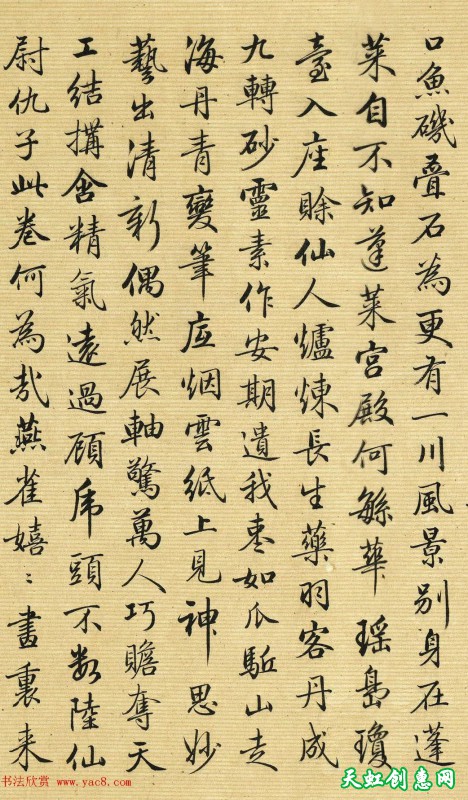 口魚磯疊石為更有一川風景别身在蓬
萊自不知蓬萊宮殿何緐華瑤島瓊
臺入座賒仙人爐煉長生藥羽客丹成
九轉砂靈素作安期遺我棗如瓜駈山走
海丹青變筆底烟雲紙上見神思妙
藝出清新偶然展軸驚萬人巧贍奪天
工結搆含精氣遠過顧虎頭不數陸仙
尉仇子此卷何為哉燕雀嬉〻畫裏来
书法欣赏 www.yac8.com
天虹创惠网